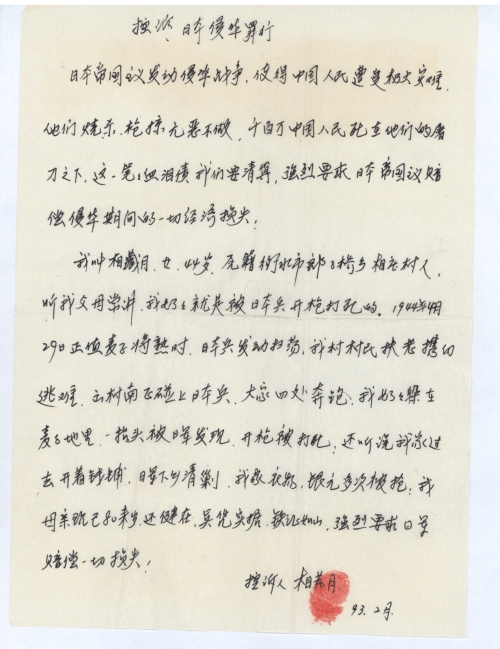 控诉日本侵华罪行
日本帝国议发动侵华战争，使得中国人民遭受极大灾难，
他们烧杀、枪掠无恶不做，千百万中国人民死在他们的屠
刀之下，这一笔笔血泪债我们要清算，强烈要求日本帝国议赔
偿侵华期间的一切经济损失！
我叫相 月，女，44岁，原籍衡水市 桥乡相庄村人，
听我父母常讲，我奶奶就是被日本兵开枪打死的。1944年4月
29日正值麦子将熟时，日本兵发动扫荡，我村村民扶老携幼
逃难，云村南正碰上日本兵，大家四处奔跑，我奶奶躲在
麦子地里，一抬头被日军发现，开枪被打死；还听说我家过
去开着钱铺，日军下乡清剿，我家衣物，银元多次被抢；我
母亲现已80来岁，还健在，真凭实据，铁证如山，强烈要求日军
赔偿一切损失！
控诉人 相 月
93.2月.